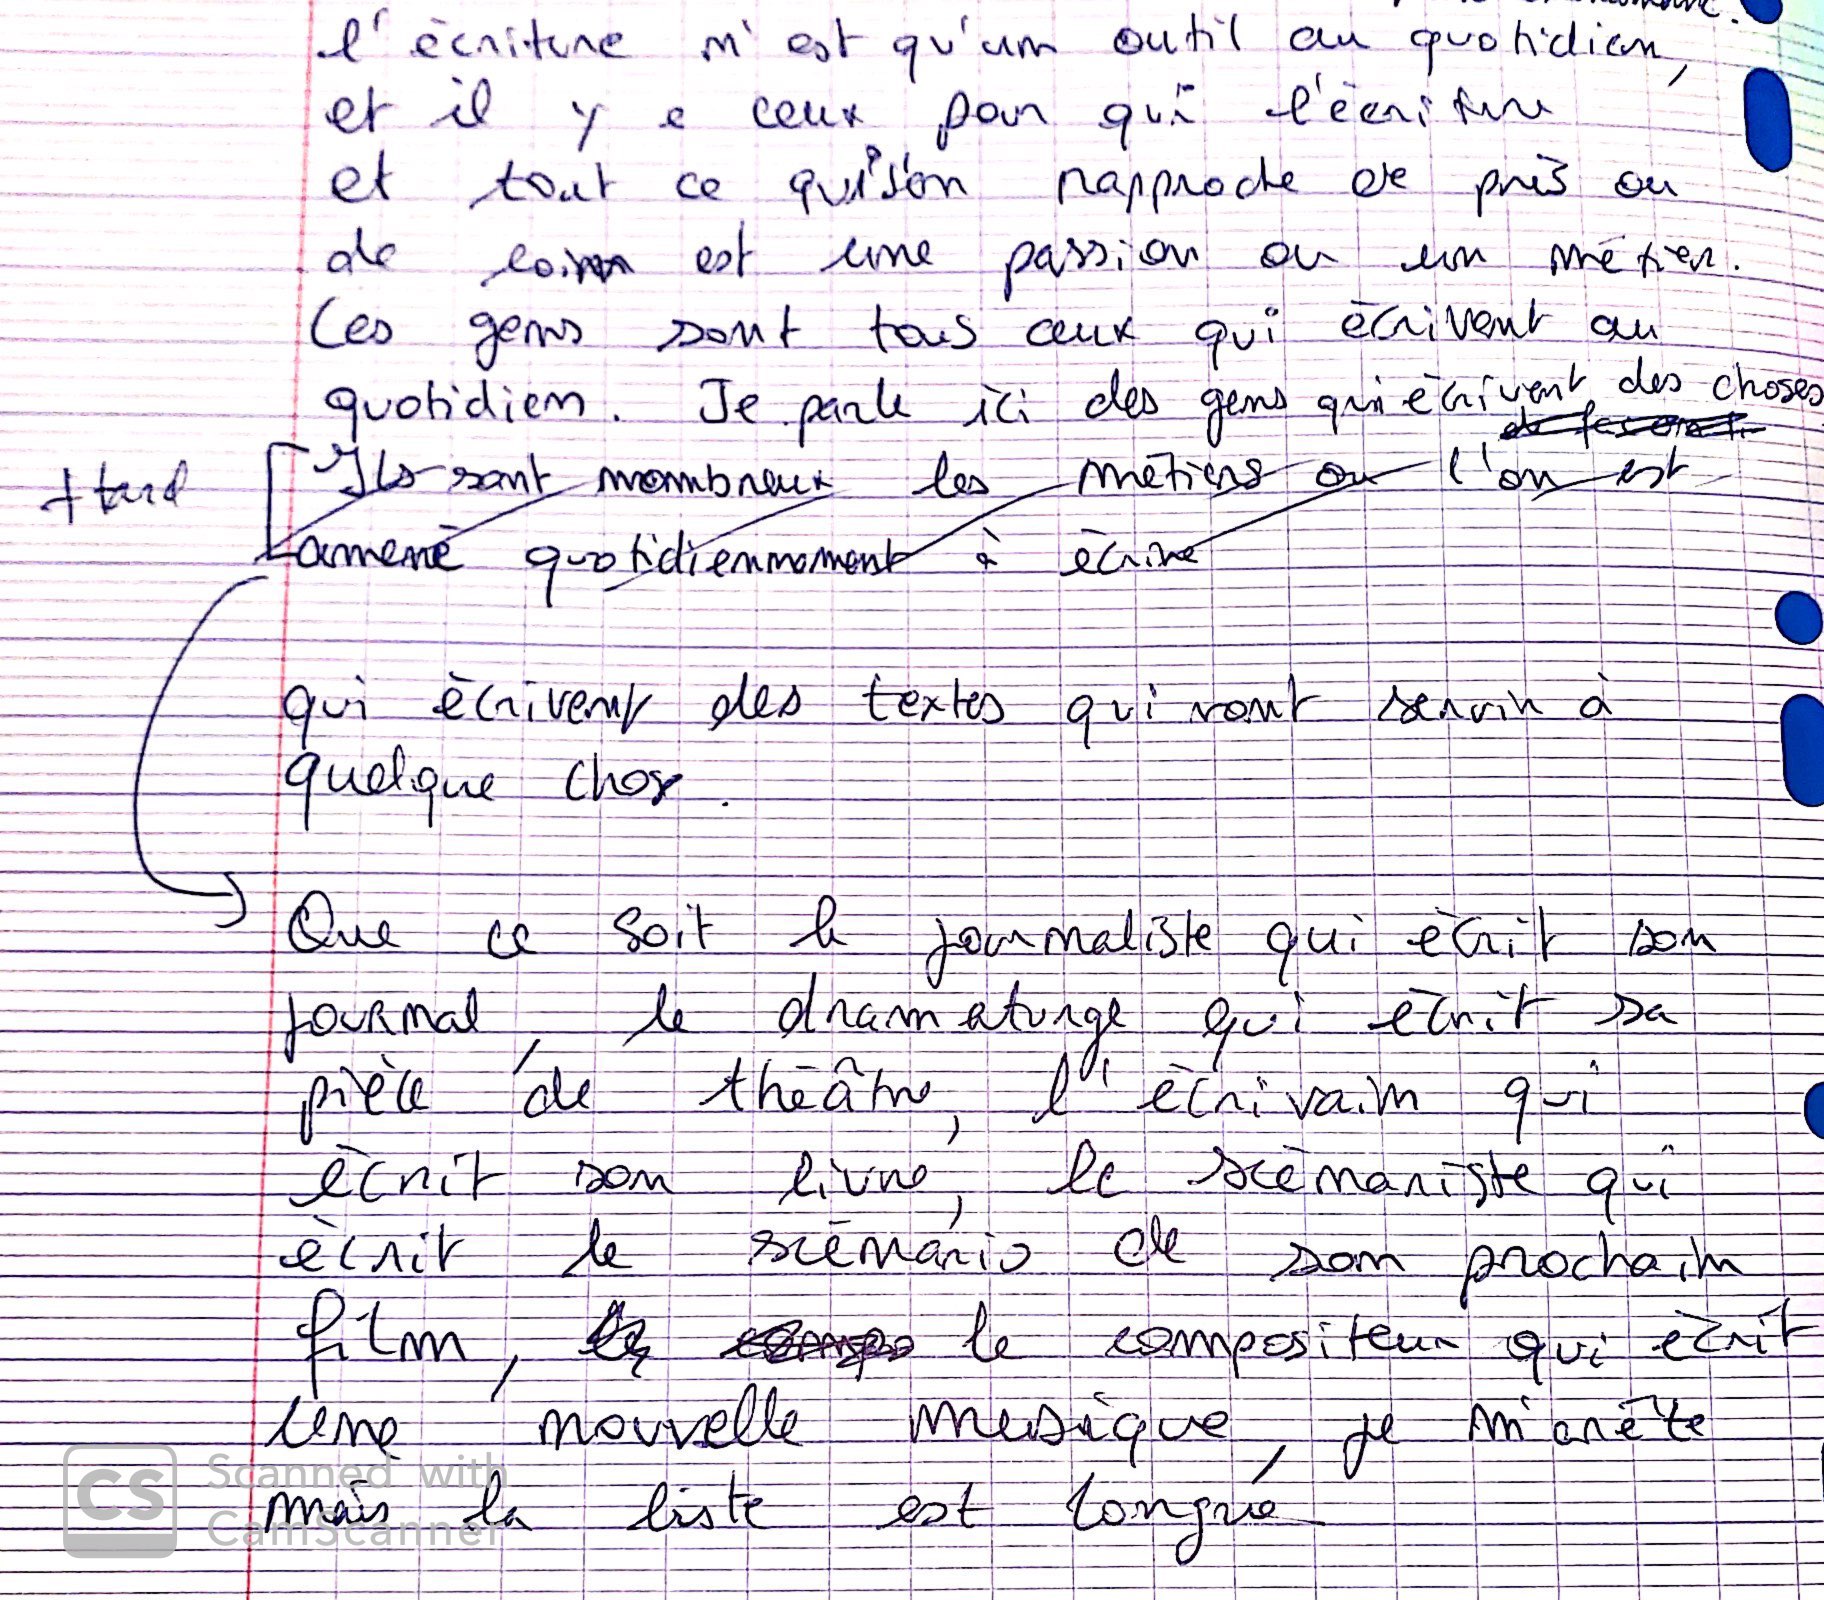 l'écriture n'est qu'un outil au quotidien,
et il y a ceux pour qui l'écriture
et tout ce qui s'en rapproche de près ou
de loin est une passion ou un métier.
Ces gens sont tous ceux qui écrivent au
quotidien. Je parle ici des gens qui écrivent des choses
+ tard
Ils sont nombreux les métiers ou l'on est
amené quotidiennement à écrire
qui écrivent des textes qui vont servir à
quelque chose.
Que ce soit le journaliste qui écrit son
journal, le dramaturge qui écrit sa
pièce de théâtre, l'écrivain qui
écrit son livre, le scénariste qui
écrit le scénario de son prochain
film, le compositeur qui écrit
une nouvelle musique, je m'arrête
mais la liste est longue
CS Scanned with
CamScanner